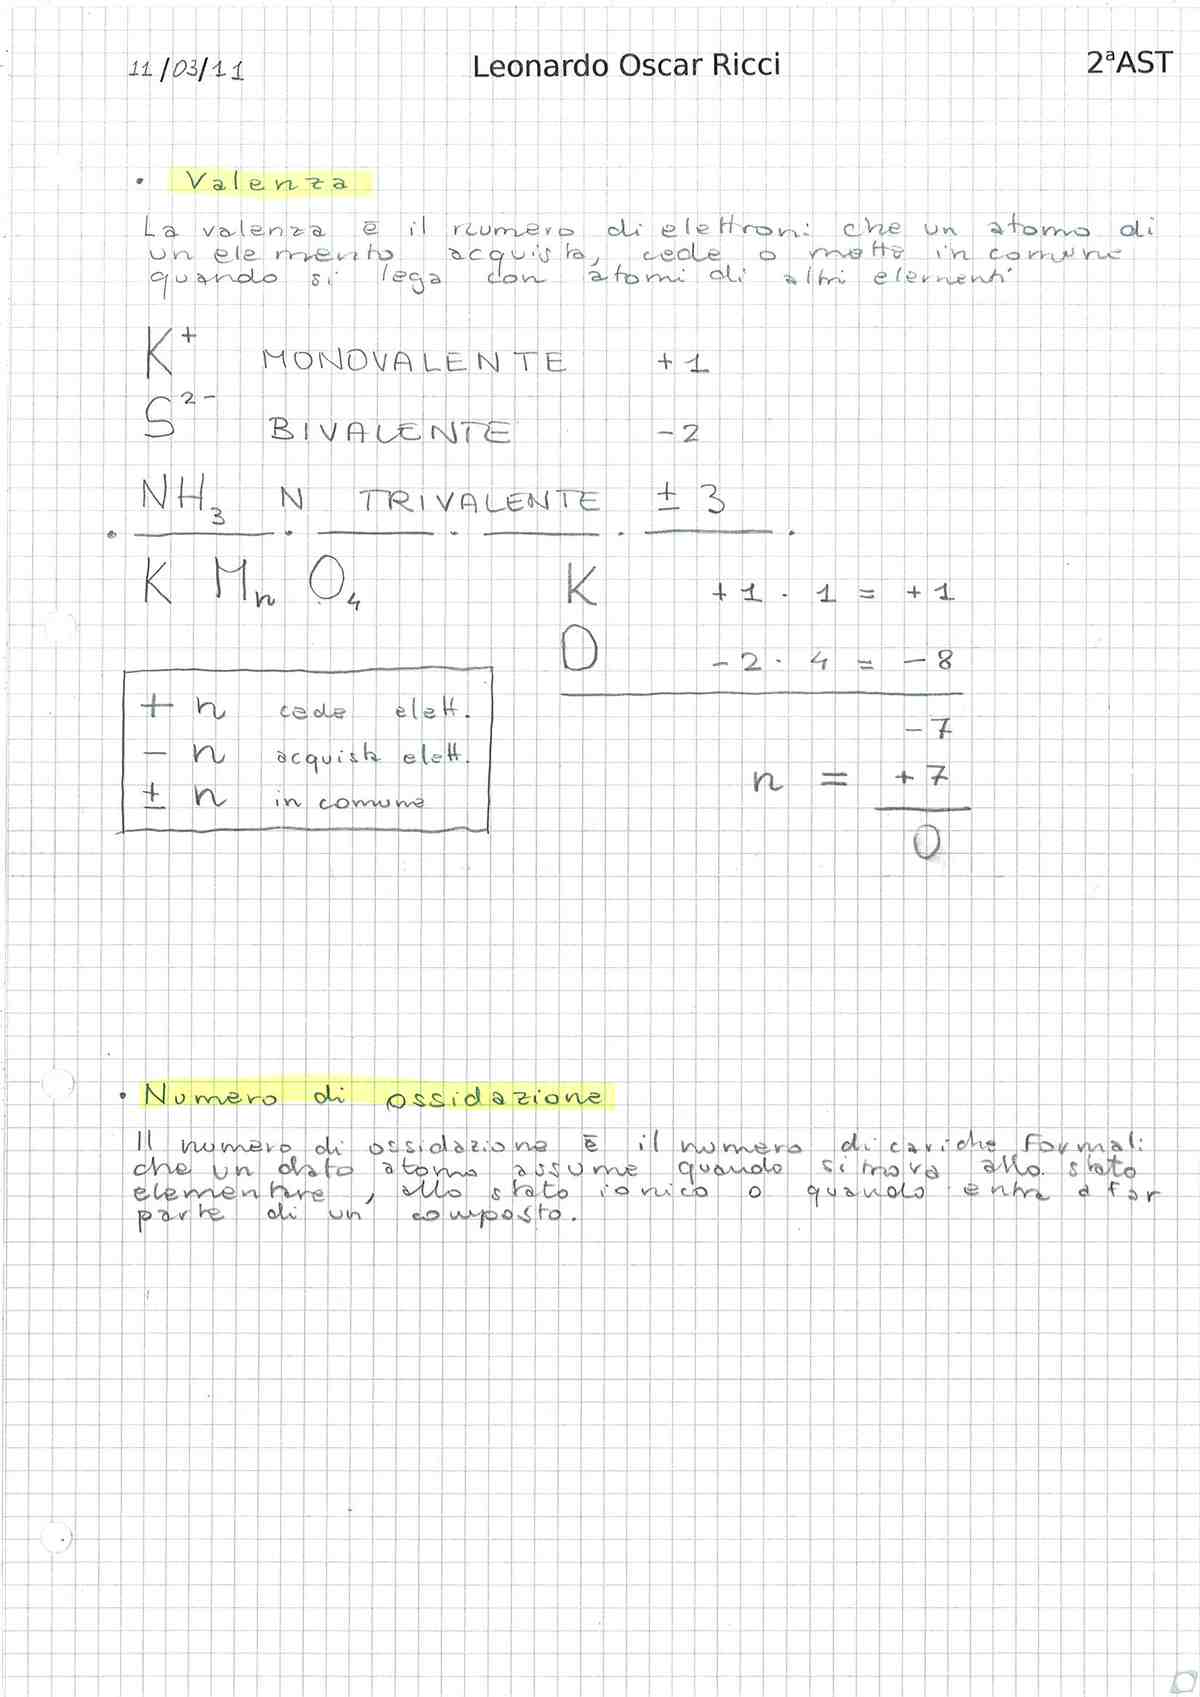 11/03/11 Leonardo Oscar Ricci 2ªAST
• Valenza
La valenza è il numero di elettroni che un atomo di
un elemento acquista, cede o mette in comune
quando si lega con atomi di altri elementi
K⁺ MONOVALENTE +1
S²⁻ BIVALENTE -2
NH₃ N TRIVALENTE ± 3
K Mn O₄ K +1 · 1 = +1
O -2 · 4 = -8
+ n cede elett. -7
- n acquista elett. n = +7
± n in comune 0
• Numero di ossidazione
Il numero di ossidazione è il numero di cariche formali
che un dato atomo assume quando si trova allo stato
elementare, allo stato ionico o quando entra a far
parte di un composto.